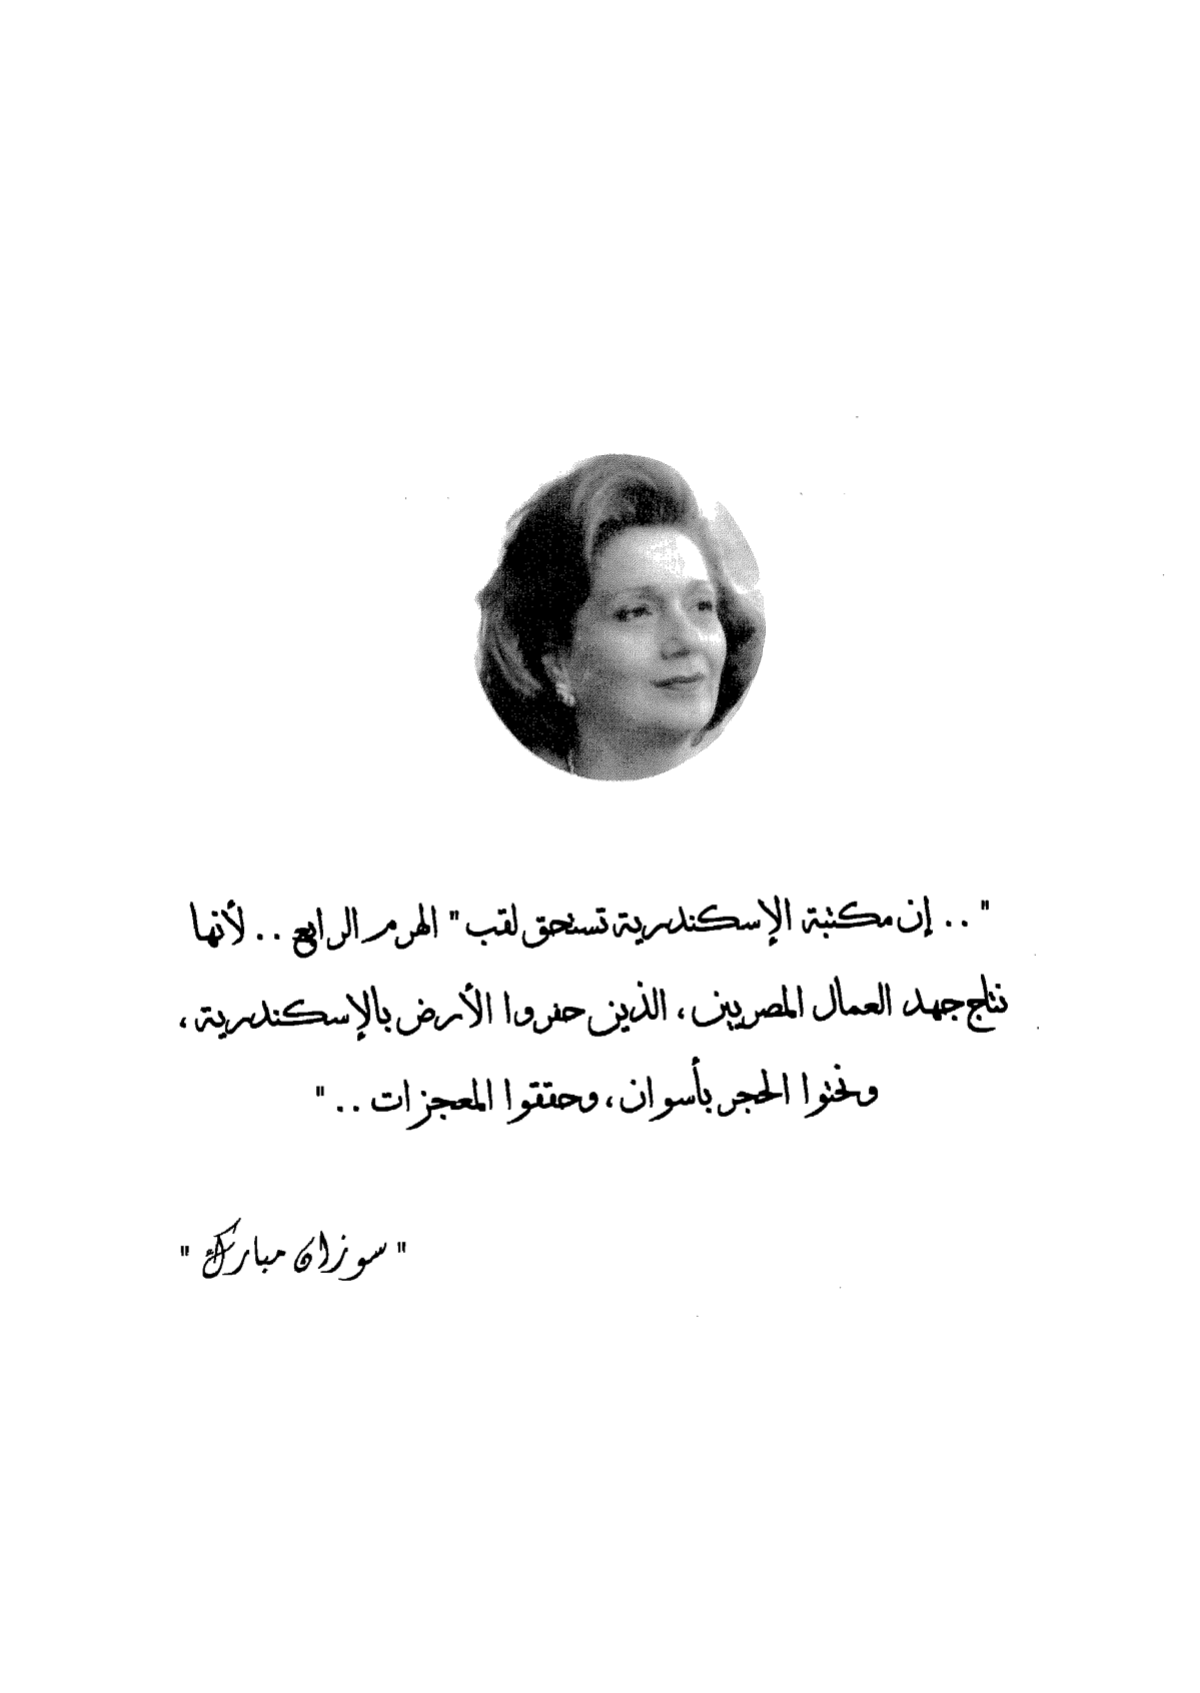 " .. إن مكتبة الإسكندرية تستحق لقب " الهرم الرابع .. لأنها
نتاج جهد العمال المصريين ، الذين حفروا الأرض بالإسكندرية ،
ونحتوا الحجر بأسوان ، وحققوا المعجزات .. "
" سوزان مبارك "